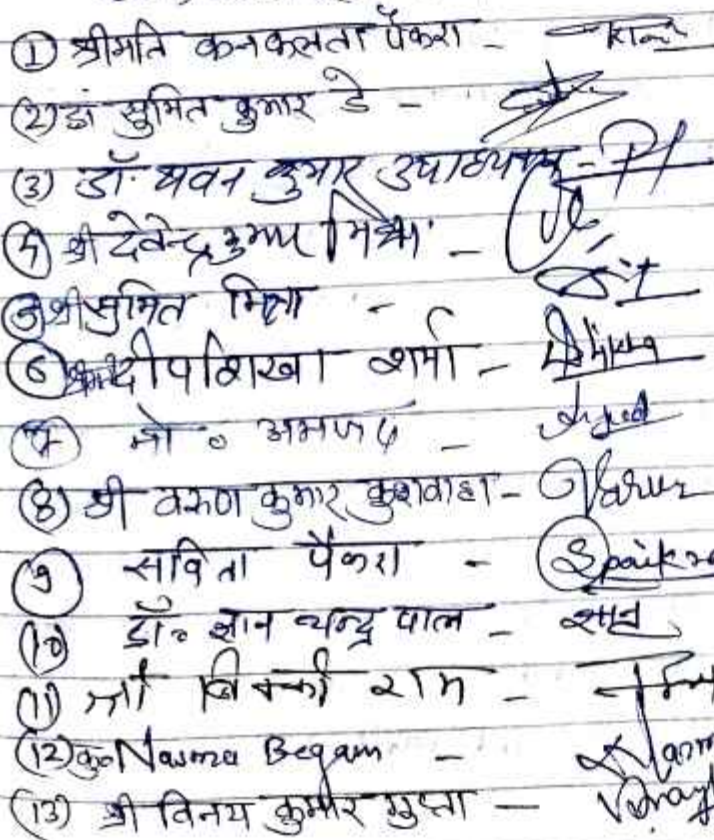 ① श्रीमति कनकलता पैंकरा - 
(2) डॉ सुमित कुमार डे -
(3) डॉ. पवन कुमार उपाध्याय -
④ श्री देवेन्द्र कुमार मिश्रा -
⑤ श्री सुमित मित्रा -
⑥ दीपशिखा शर्मा -
⑦ मो० अमजद -
(8) श्री वरुण कुमार कुशवाहा - Varun
⑨ सविता पैंकरा - Spaikra
(10) डॉ० ज्ञान चन्द्र पाल - ज्ञान
(11) श्री विक्की राम -
(12) कु० Nasma Begam -
(13) श्री विनय कुमार गुप्ता - Vinay